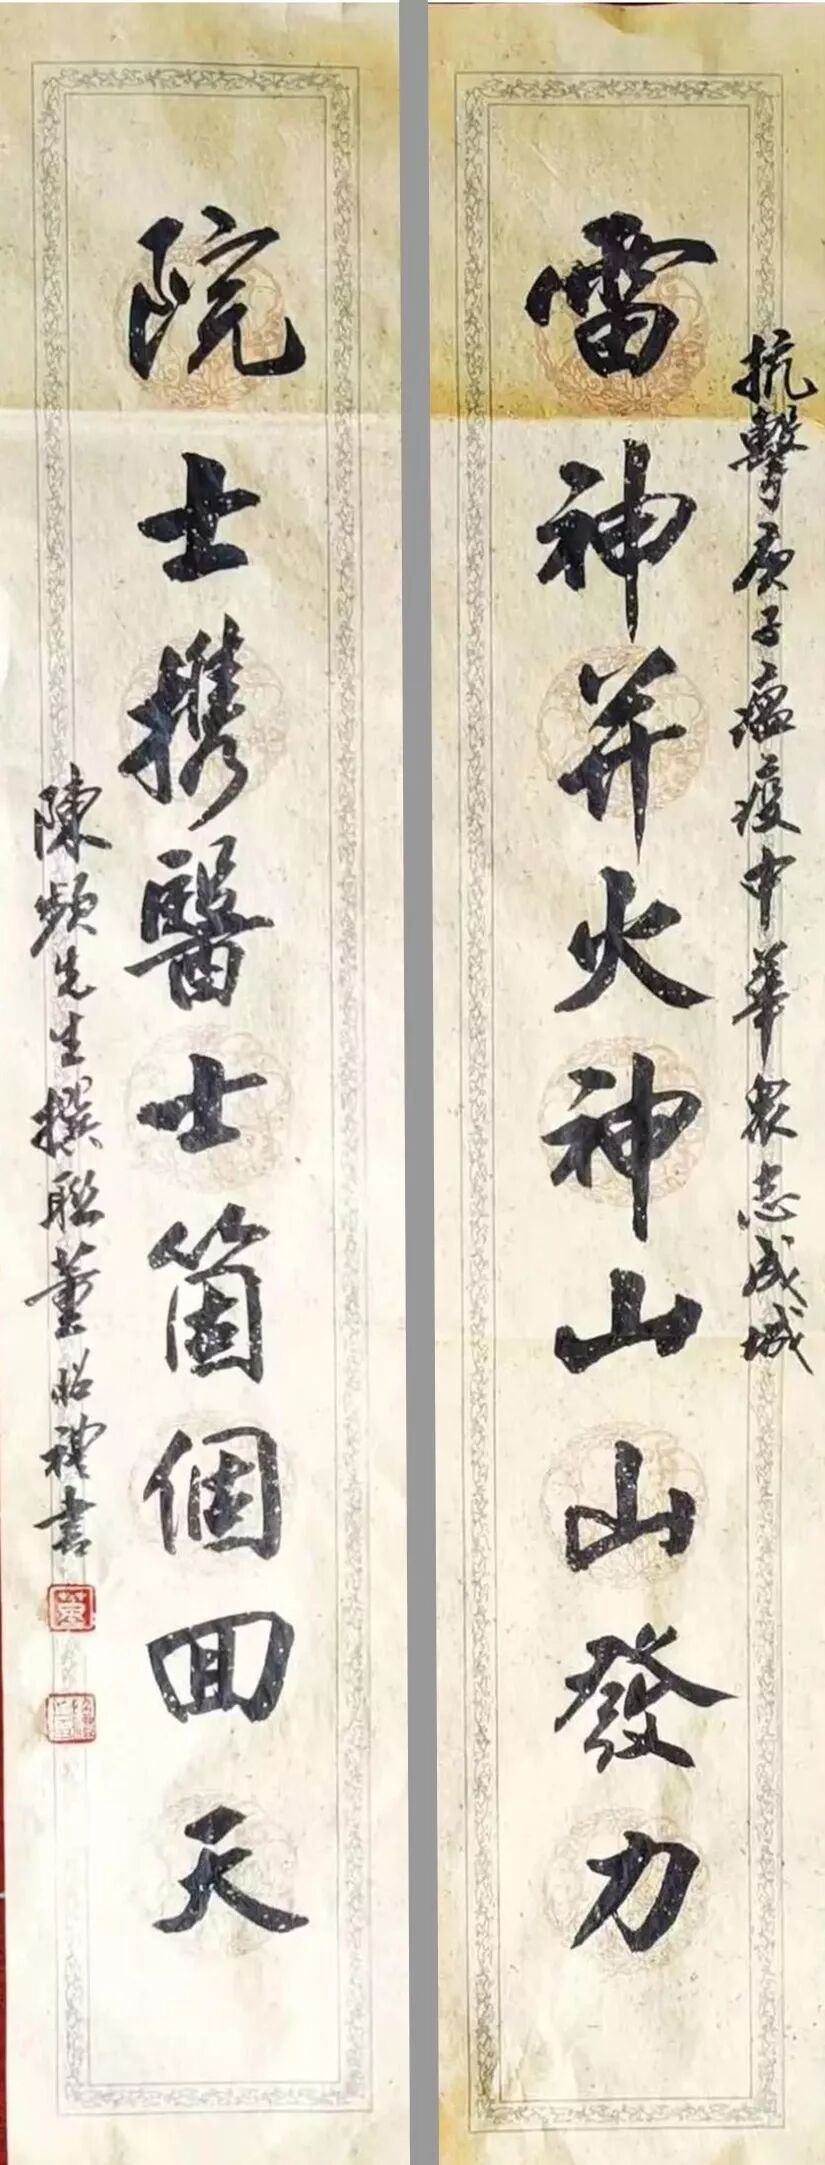 抗擊庚子瘟疫中華衆志成城
雷神并火神山山發力
院士攜醫士箇個回天
陳頻先生撰聯董昭禮書
董